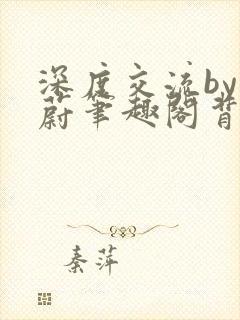 深度交流by
蔚笔趣阁背
秦萍